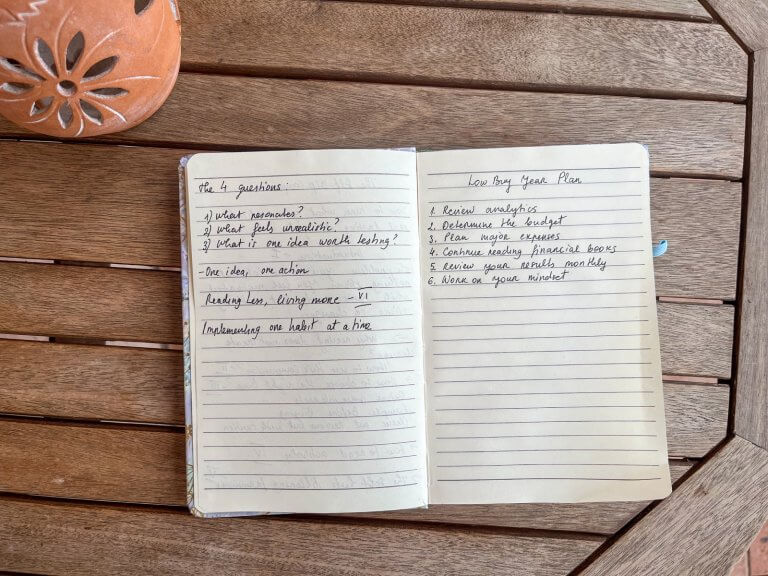 The 4 questions:
1) What resonates?
2) What feels unrealistic?
3) What is one idea worth testing?
One idea, one action
Reading less, living more - VI
Implementing one habit at a time
Low Buy Year Plan
1. Review analytics
2. Determine the budget
3. Plan major expenses
4. Continue reading financial books
5. Review your results monthly
6. Work on your mindset